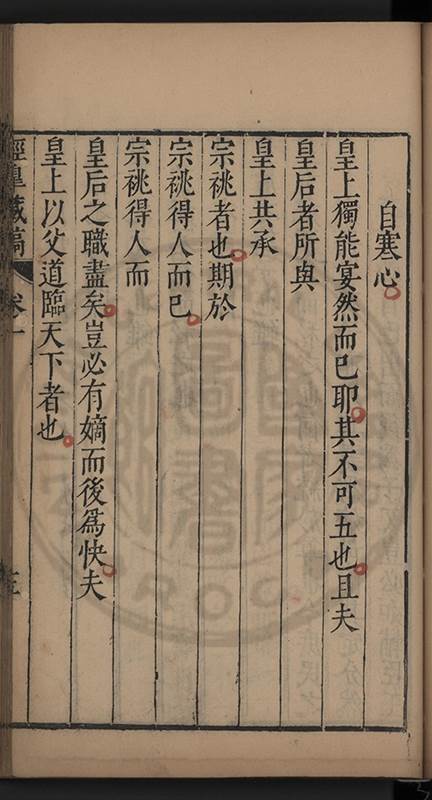 自寒心
皇上獨能宴然而已耶其不可五也且夫
皇后者所與
皇上共承
宗祧者也期於
宗祧得人而已
宗祧得人而
皇后之職盡矣豈必有嫡而後爲快夫
皇上以父道臨天下者也
經臯藏稿
卷一